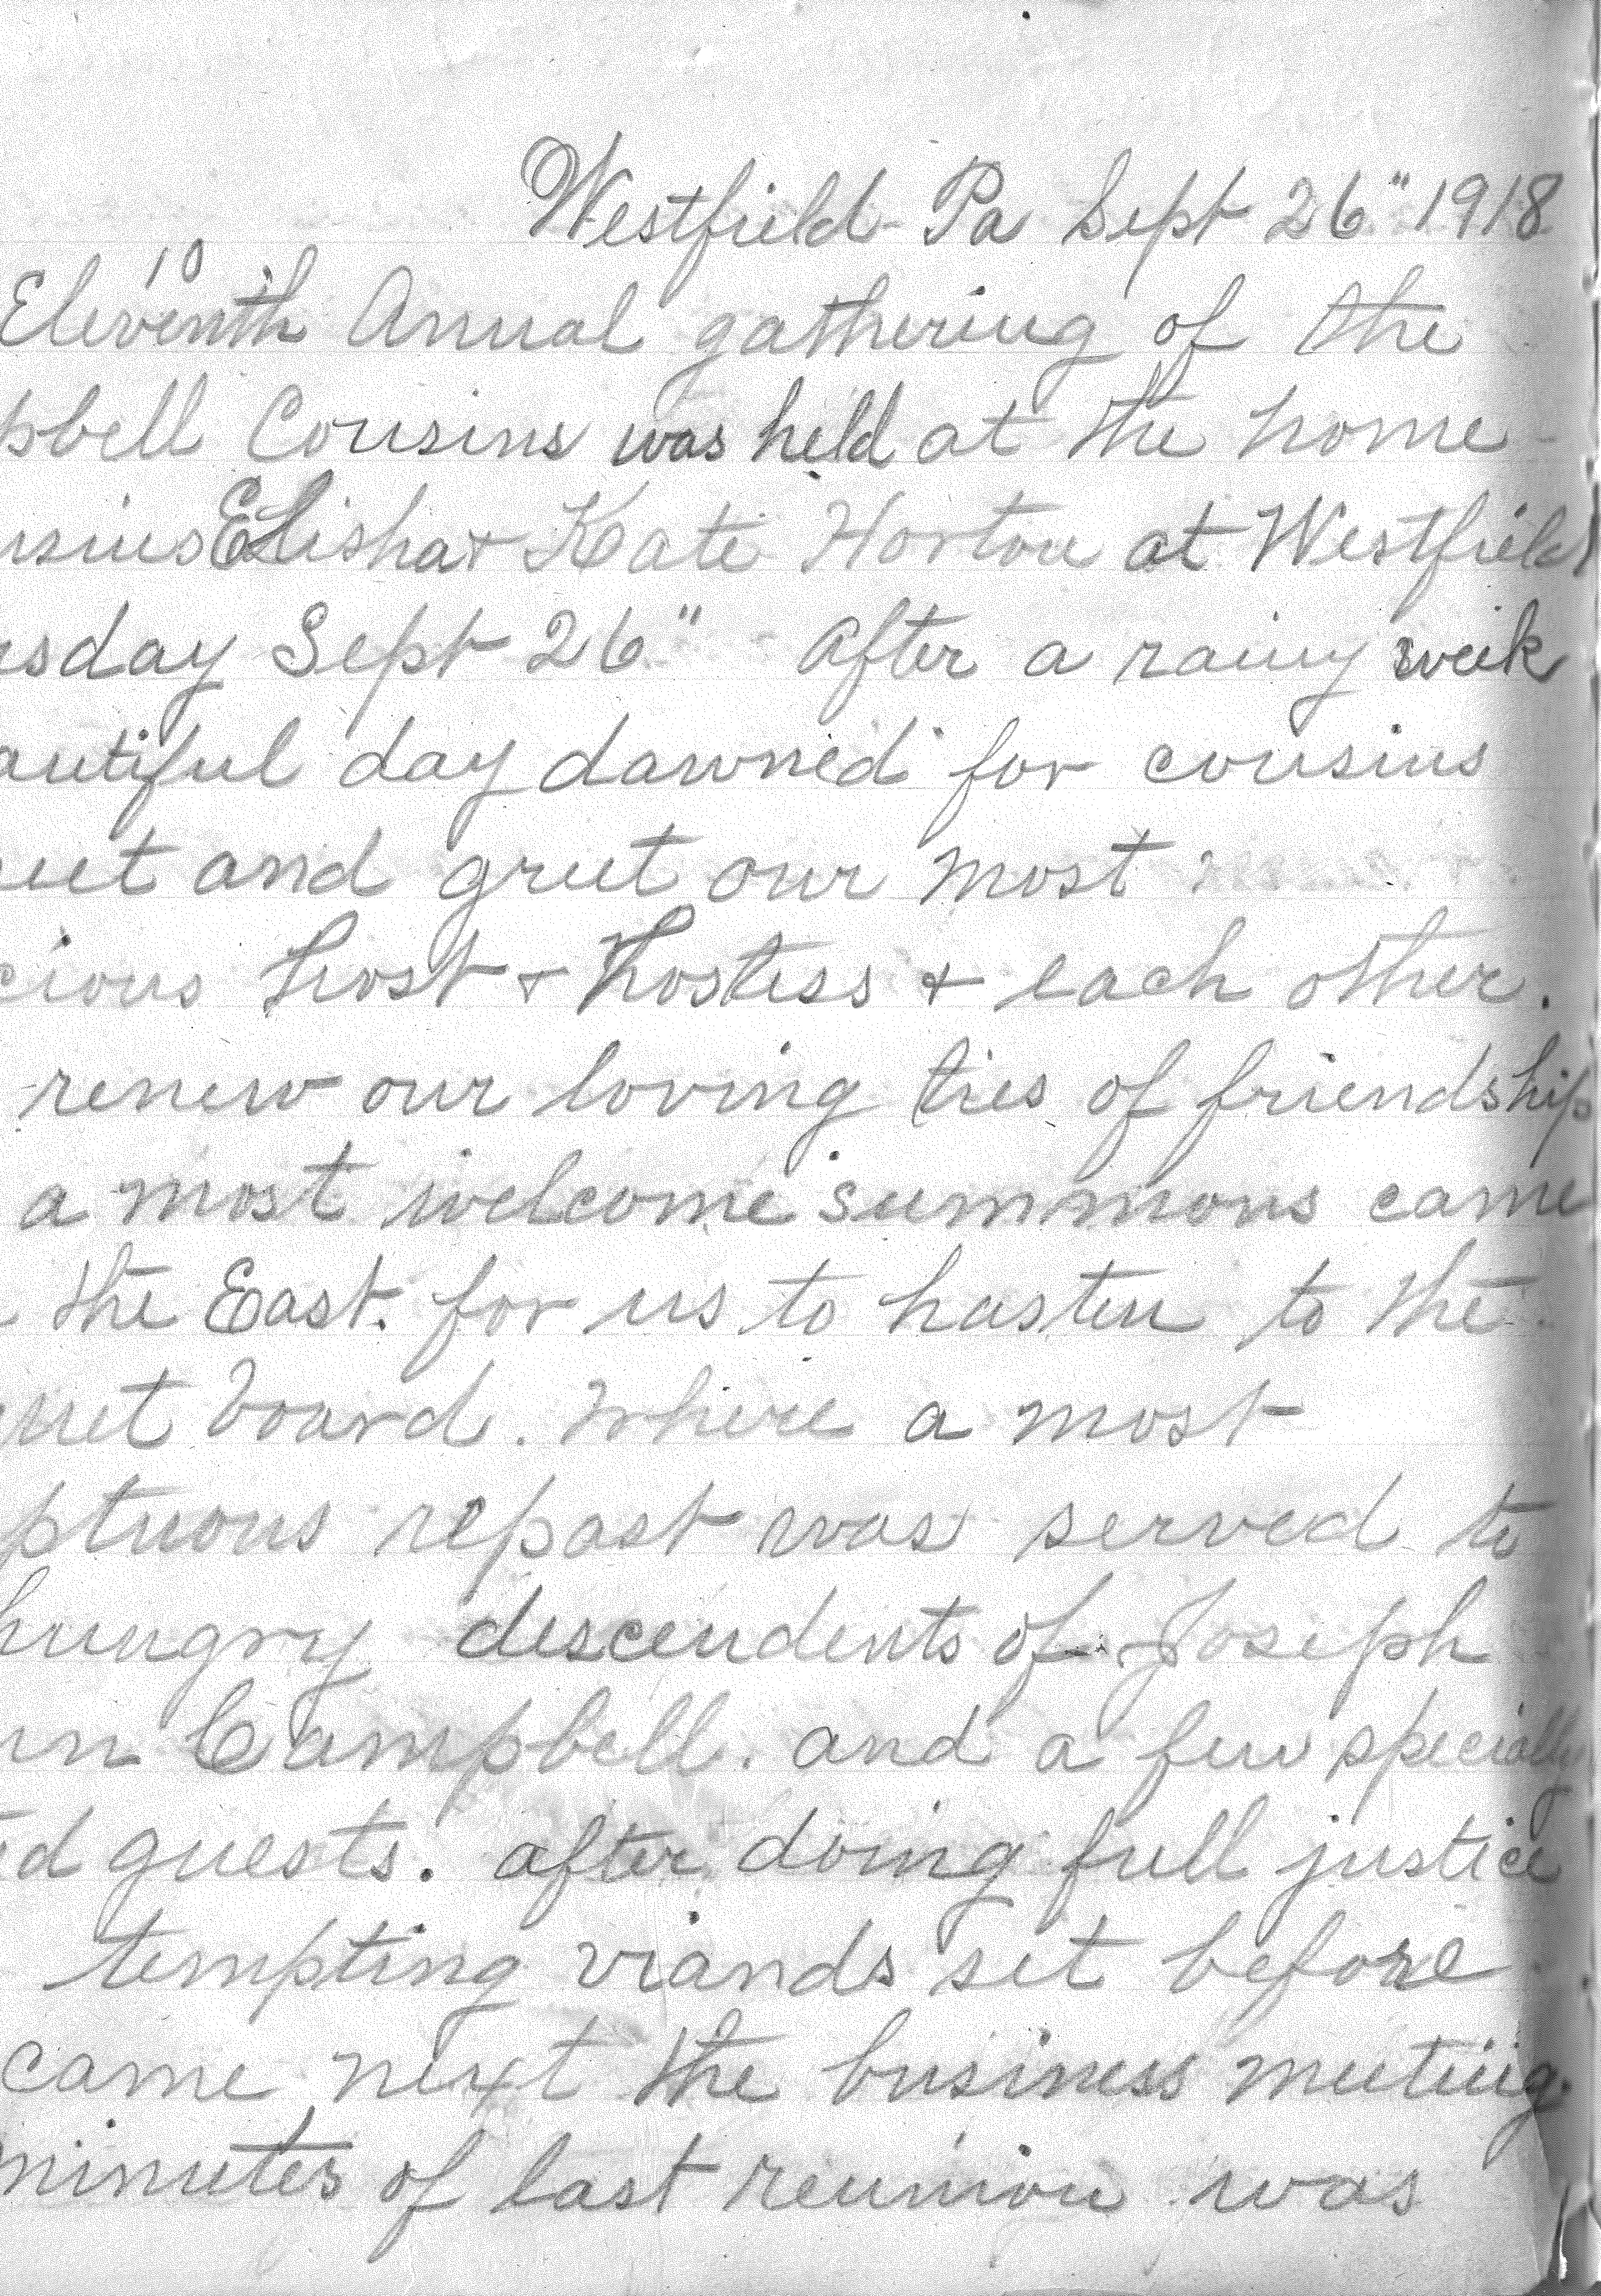 Westfield Pa Sept 26" 1918
10
Eleventh Annual gathering of the
pbell Cousins was held at the home
usins Elisha + Kate Horton at Westfield
sday Sept 26" After a rainy week
autiful day dawned for cousins
eet and greet our most
cious host + hostess + each other.
renew our loving ties of friendship
a most welcome summons came
the East. for us to hasten to the
uet board. Where a most
ptuous repast was served to
hungry descendents of Joseph
nn Campbell. and a few specially
ed guests. after doing full justice
tempting viands set before
came next the business meeting.
minutes of last reunion was